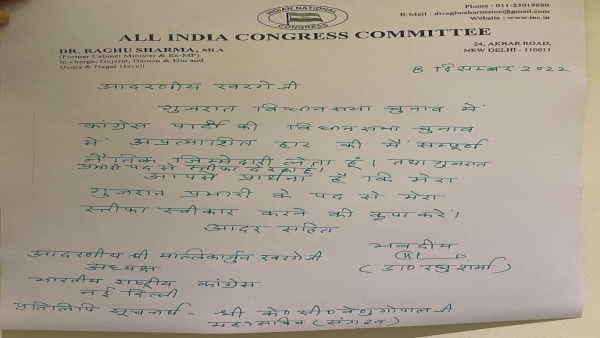 INDIAN NATIONAL
CONGRESS
Phone : 011-23019080
E-Mail :
Website : www.inc.in
ALL INDIA CONGRESS COMMITTEE
DR. RAGHU SHARMA, MLA
(Former Cabinet Minister & Ex-MP)
In-charge, Gujarat, Daman & Diu and
Dadra & Nagar Haveli
24, AKBAR ROAD,
NEW DELHI - 110011
8 दिसम्बर 2022
आदरणीय खरगेजी
गुजरात विधानसभा चुनाव में
कांग्रेस पार्टी की विधानसभा चुनाव
में अप्रत्याशित हार की मैं सम्पूर्ण
नैतिक जिम्मेदारी लेता हूँ। तथा गुजरात
प्रभारी पद से स्तीफा दे रहा हूँ।
आपसे प्रार्थना है कि मेरा
गुजरात प्रभारी के पद से मेरा
स्तीफा स्वीकार करने की कृपा करें।
आदर सहित
भवदीय
(डा० रघु शर्मा)
आदरणीय श्री मल्लिकार्जुन खरगेजी
अध्यक्ष
भारतीय राष्ट्रीय कांग्रेस
नई दिल्ली
प्रतिलिपि सूचनार्थ - श्री के० सी० वेणुगोपाल जी
महासचिव (संगठन)